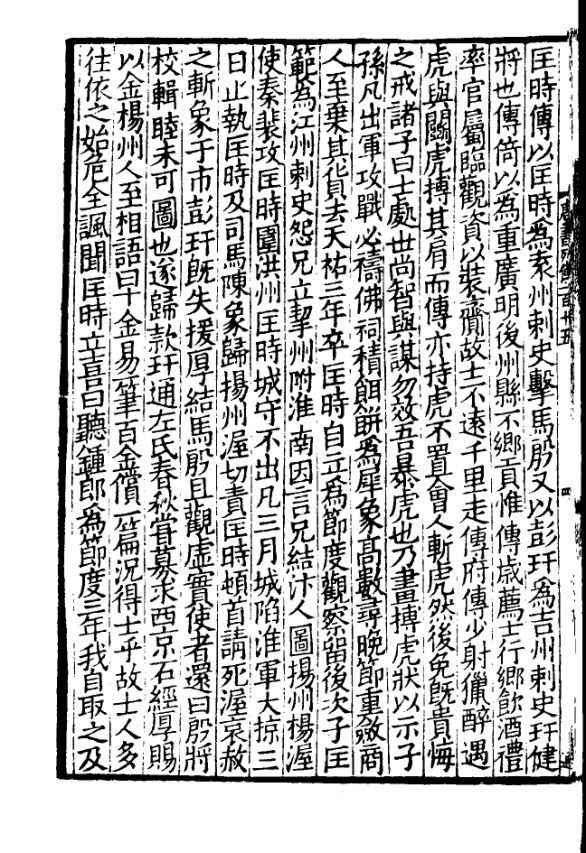 匡時傳以匡時爲袁州刺史擊馬殷又以彭玕爲吉州刺史玕健
將也傳倚以爲重廣明後州縣不鄉貢惟傳歲薦士行鄉飲酒禮
率官屬臨觀資以裝齎故士不遠千里走傳府傳少射獵醉遇
虎與鬭虎搏其肩而傳亦持虎不置會人斬虎然後免旣貴悔
之戒諸子曰士處世尚智與謀勿效吾暴虎也乃畫搏虎狀以示子
孫凡出軍攻戰必禱佛祠積餌餅爲犀象高數尋晚節重斂商
人至棄其貨去天祐三年卒匡時自立爲節度觀察留後次子匡
範爲江州刺史怨兄立挈州附淮南因言兄結汴人圖揚州楊渥
使秦裴攻匡時圍洪州匡時城守不出凡三月城陷淮軍大掠三
日止執匡時及司馬陳象歸揚州渥切責匡時頓首請死渥哀赦
之斬象于市彭玕旣失援厚結馬殷且觀虛實使者還曰殷將
校輯睦未可圖也遂歸款玕通左氏春秋嘗募求西京石經厚賜
以金楊州人至相語曰十金易筆百金償一篇況得士乎故士人多
往依之始危全諷聞匡時立喜曰聽鍾郎爲節度三年我自取之及
四